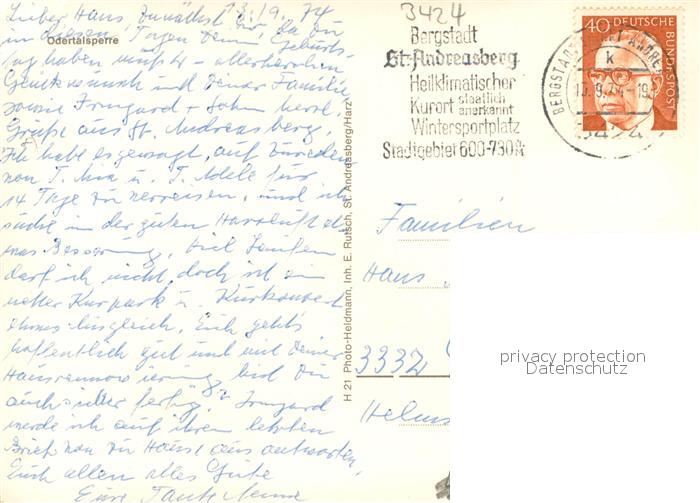 13./9. 74
Lieber Hans! Zunächst Dir, da Du
in diesen Tagen Dein Geburts
Odertalsperre
tag haben mußt - allerherzlichen
Glückwunsch und Deiner Familie
sowie Irmgard + Sohn herzl.
Grüße aus St. Andreasberg.
Ich habe es gewagt, auf Zureden
von T. u. T. Adele für
14 Tage zu verreisen, und ich
suche in der guten Harzluft et-
was Besserung. Viel Laufen
darf ich nicht, doch ist ein
netter Kurpark u. Kurkonzert
etwas Ausgleich. Euch geht's
hoffentlich gut und mit Deiner
Hausrenovierung bist Du
auch sicher fertig? Irmgard
werde ich auf ihren letzten
Brief von zu Hause aus antworten.
Euch allen alles Gute
Eure Tante
H 21 Photo-Heldmann, Inh. E. Rutsch, St. Andreasberg/Harz
3424
Bergstadt
St. Andreasberg
Heilklimatischer
Kurort staatlich anerkannt
Wintersportplatz
Stadtgebiet 600-730m
BERGSTADT ST ANDREASBERG
k
9.74-19
3424
40 DEUTSCHE BUNDESPOST
Familien
Hans
3332
Helms
privacy protection
Datenschutz